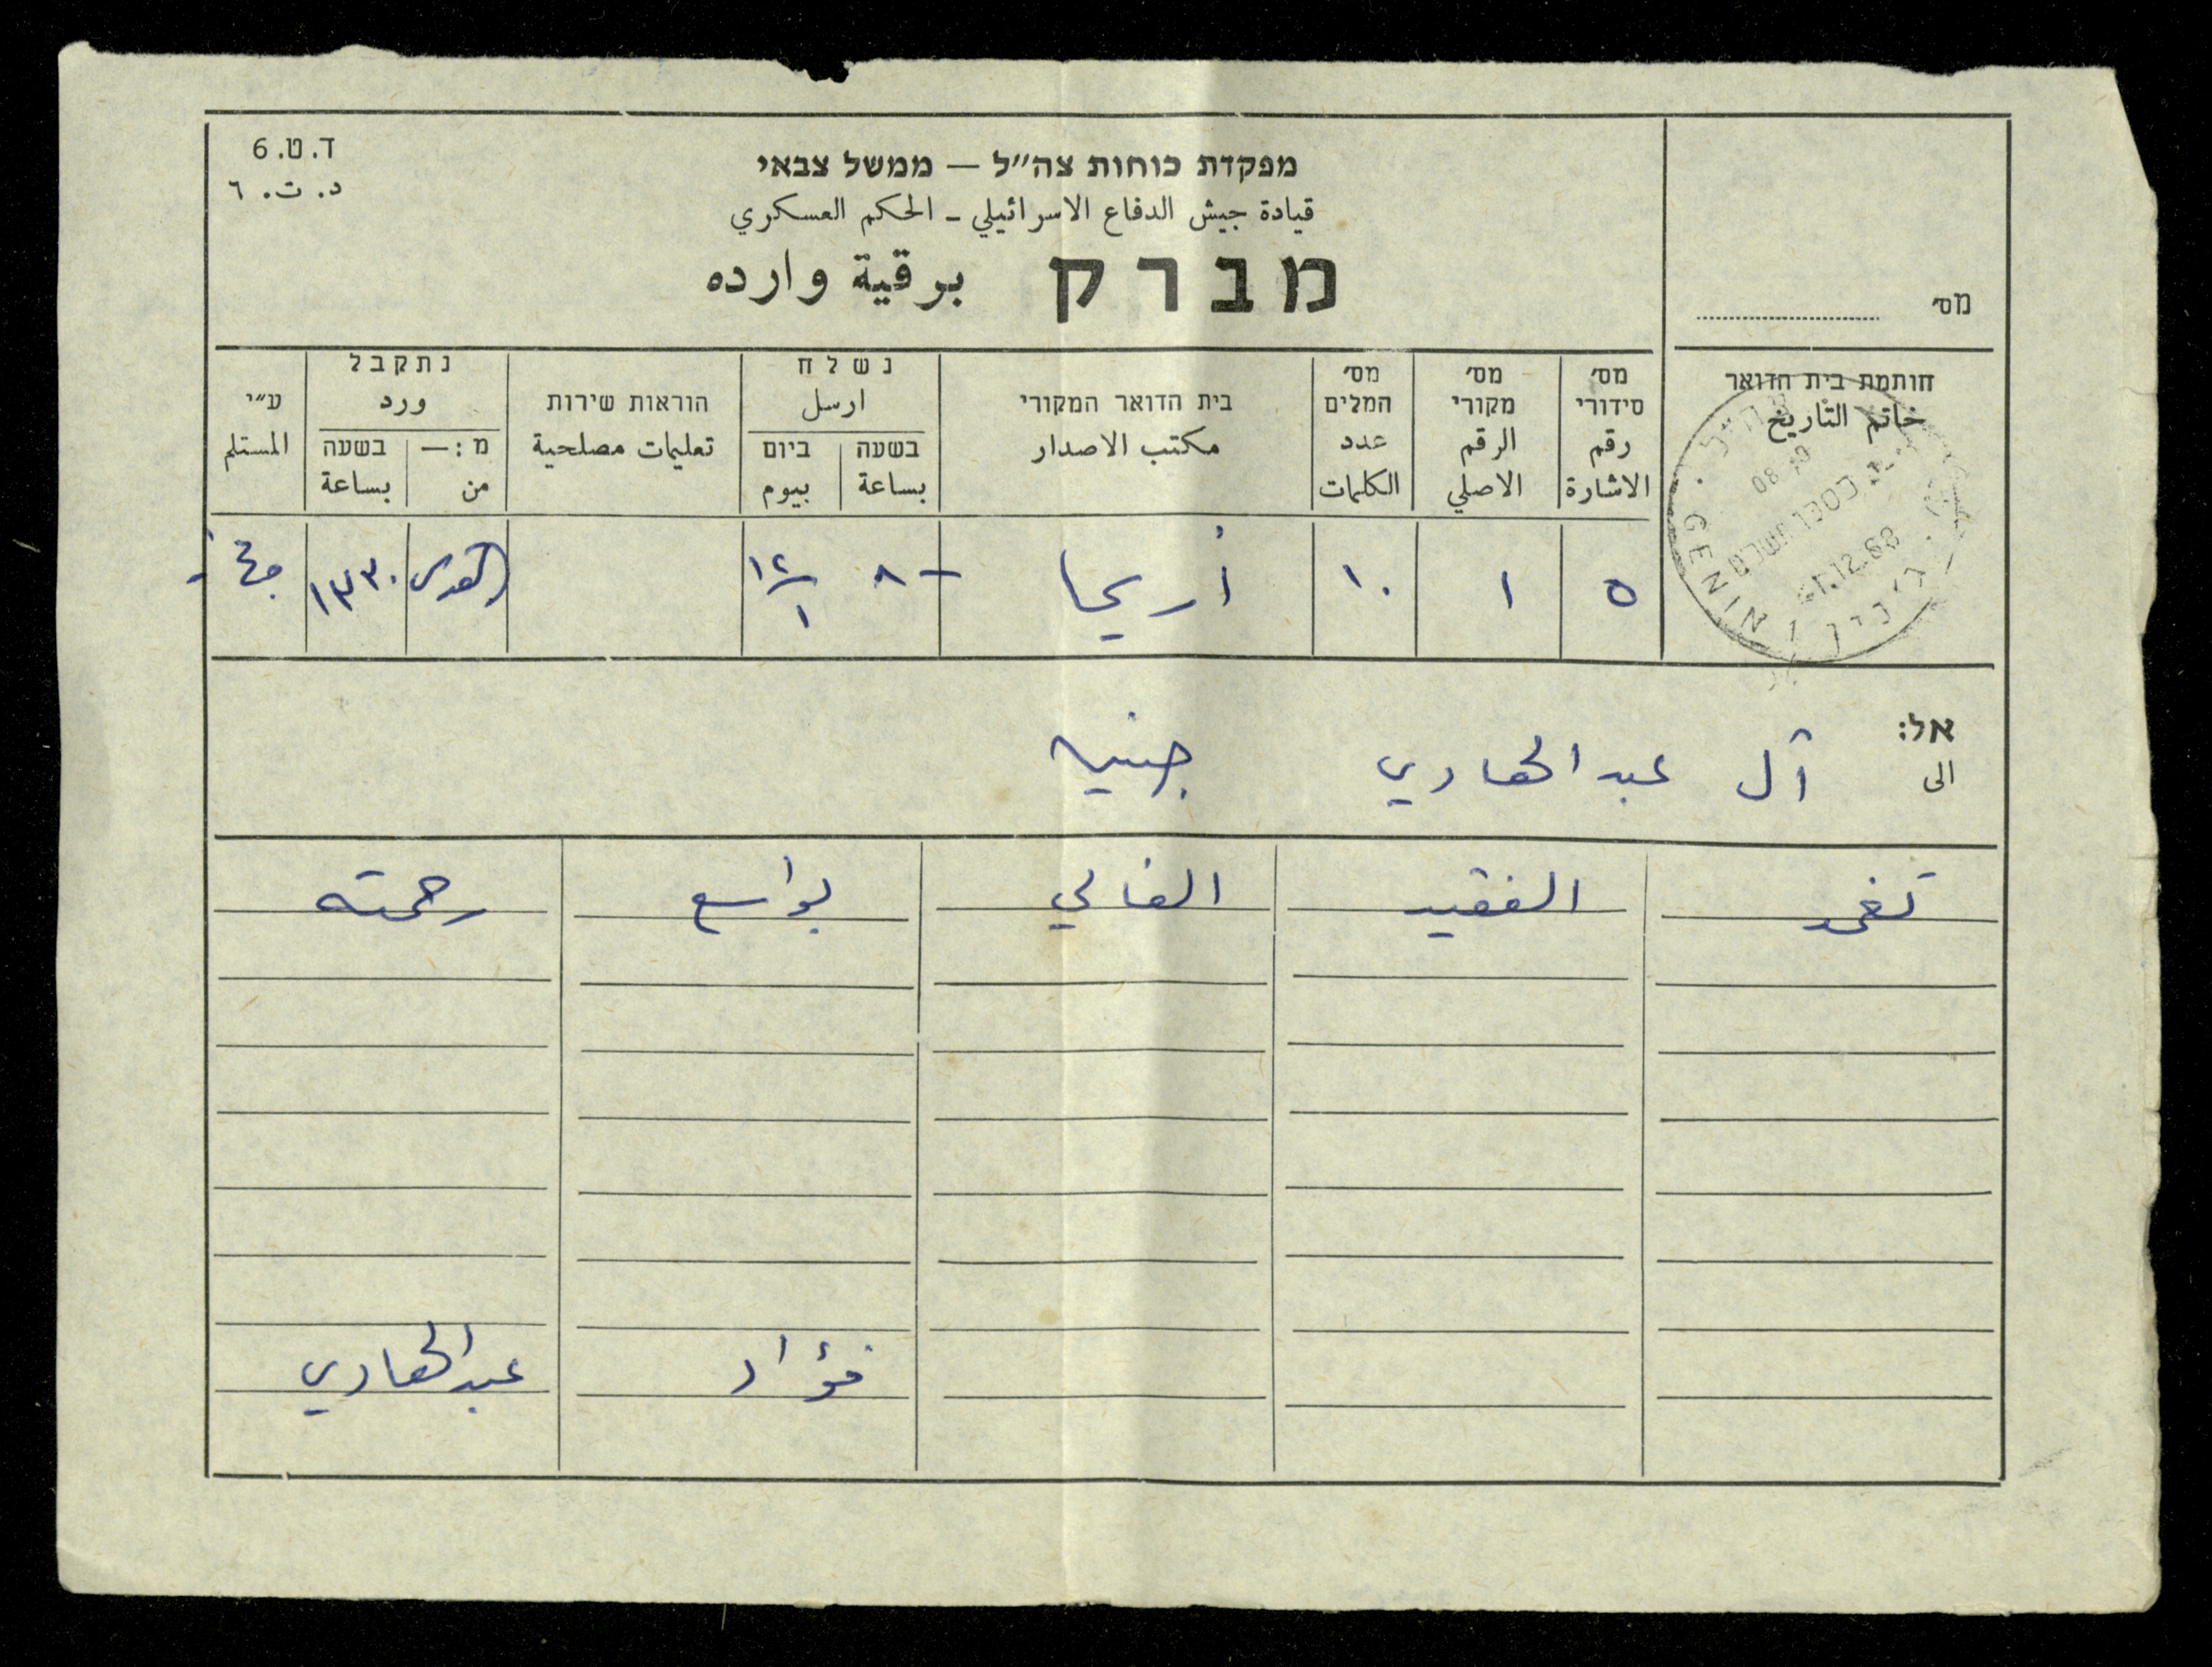 ד.ט.6
د.ت.٦
מפקדת כוחות צה״ל — ממשל צבאי
قيادة جيش الدفاع الاسرائيلي - الحكم العسكري
מברק برقية وارده
מס׳
חותמת בית הדואר
خاتم التاريخ
GENIN
08
-1.12.68
מס׳ סידורי
رقم الاشارة
מס׳ מקורי
الرقم الاصلي
מס׳ המלים
عدد الكلمات
בית הדואר המקורי
مكتب الاصدار
נשלח
ارسل
בשעה ביום
بساعة بيوم
הוראות שירות
تعليمات مصلحية
נתקבל
ورد
מ:— בשעה
من بساعة
ע״י
المستلم
٥ ١ ١٠ أريحا ٨- ١٢/١ القدس ١٣٣٠
אל:
الى آل عبد الهادي جنين
تغمد الفقيد الغالي بواسع رحمته
فؤاد عبد الهادي